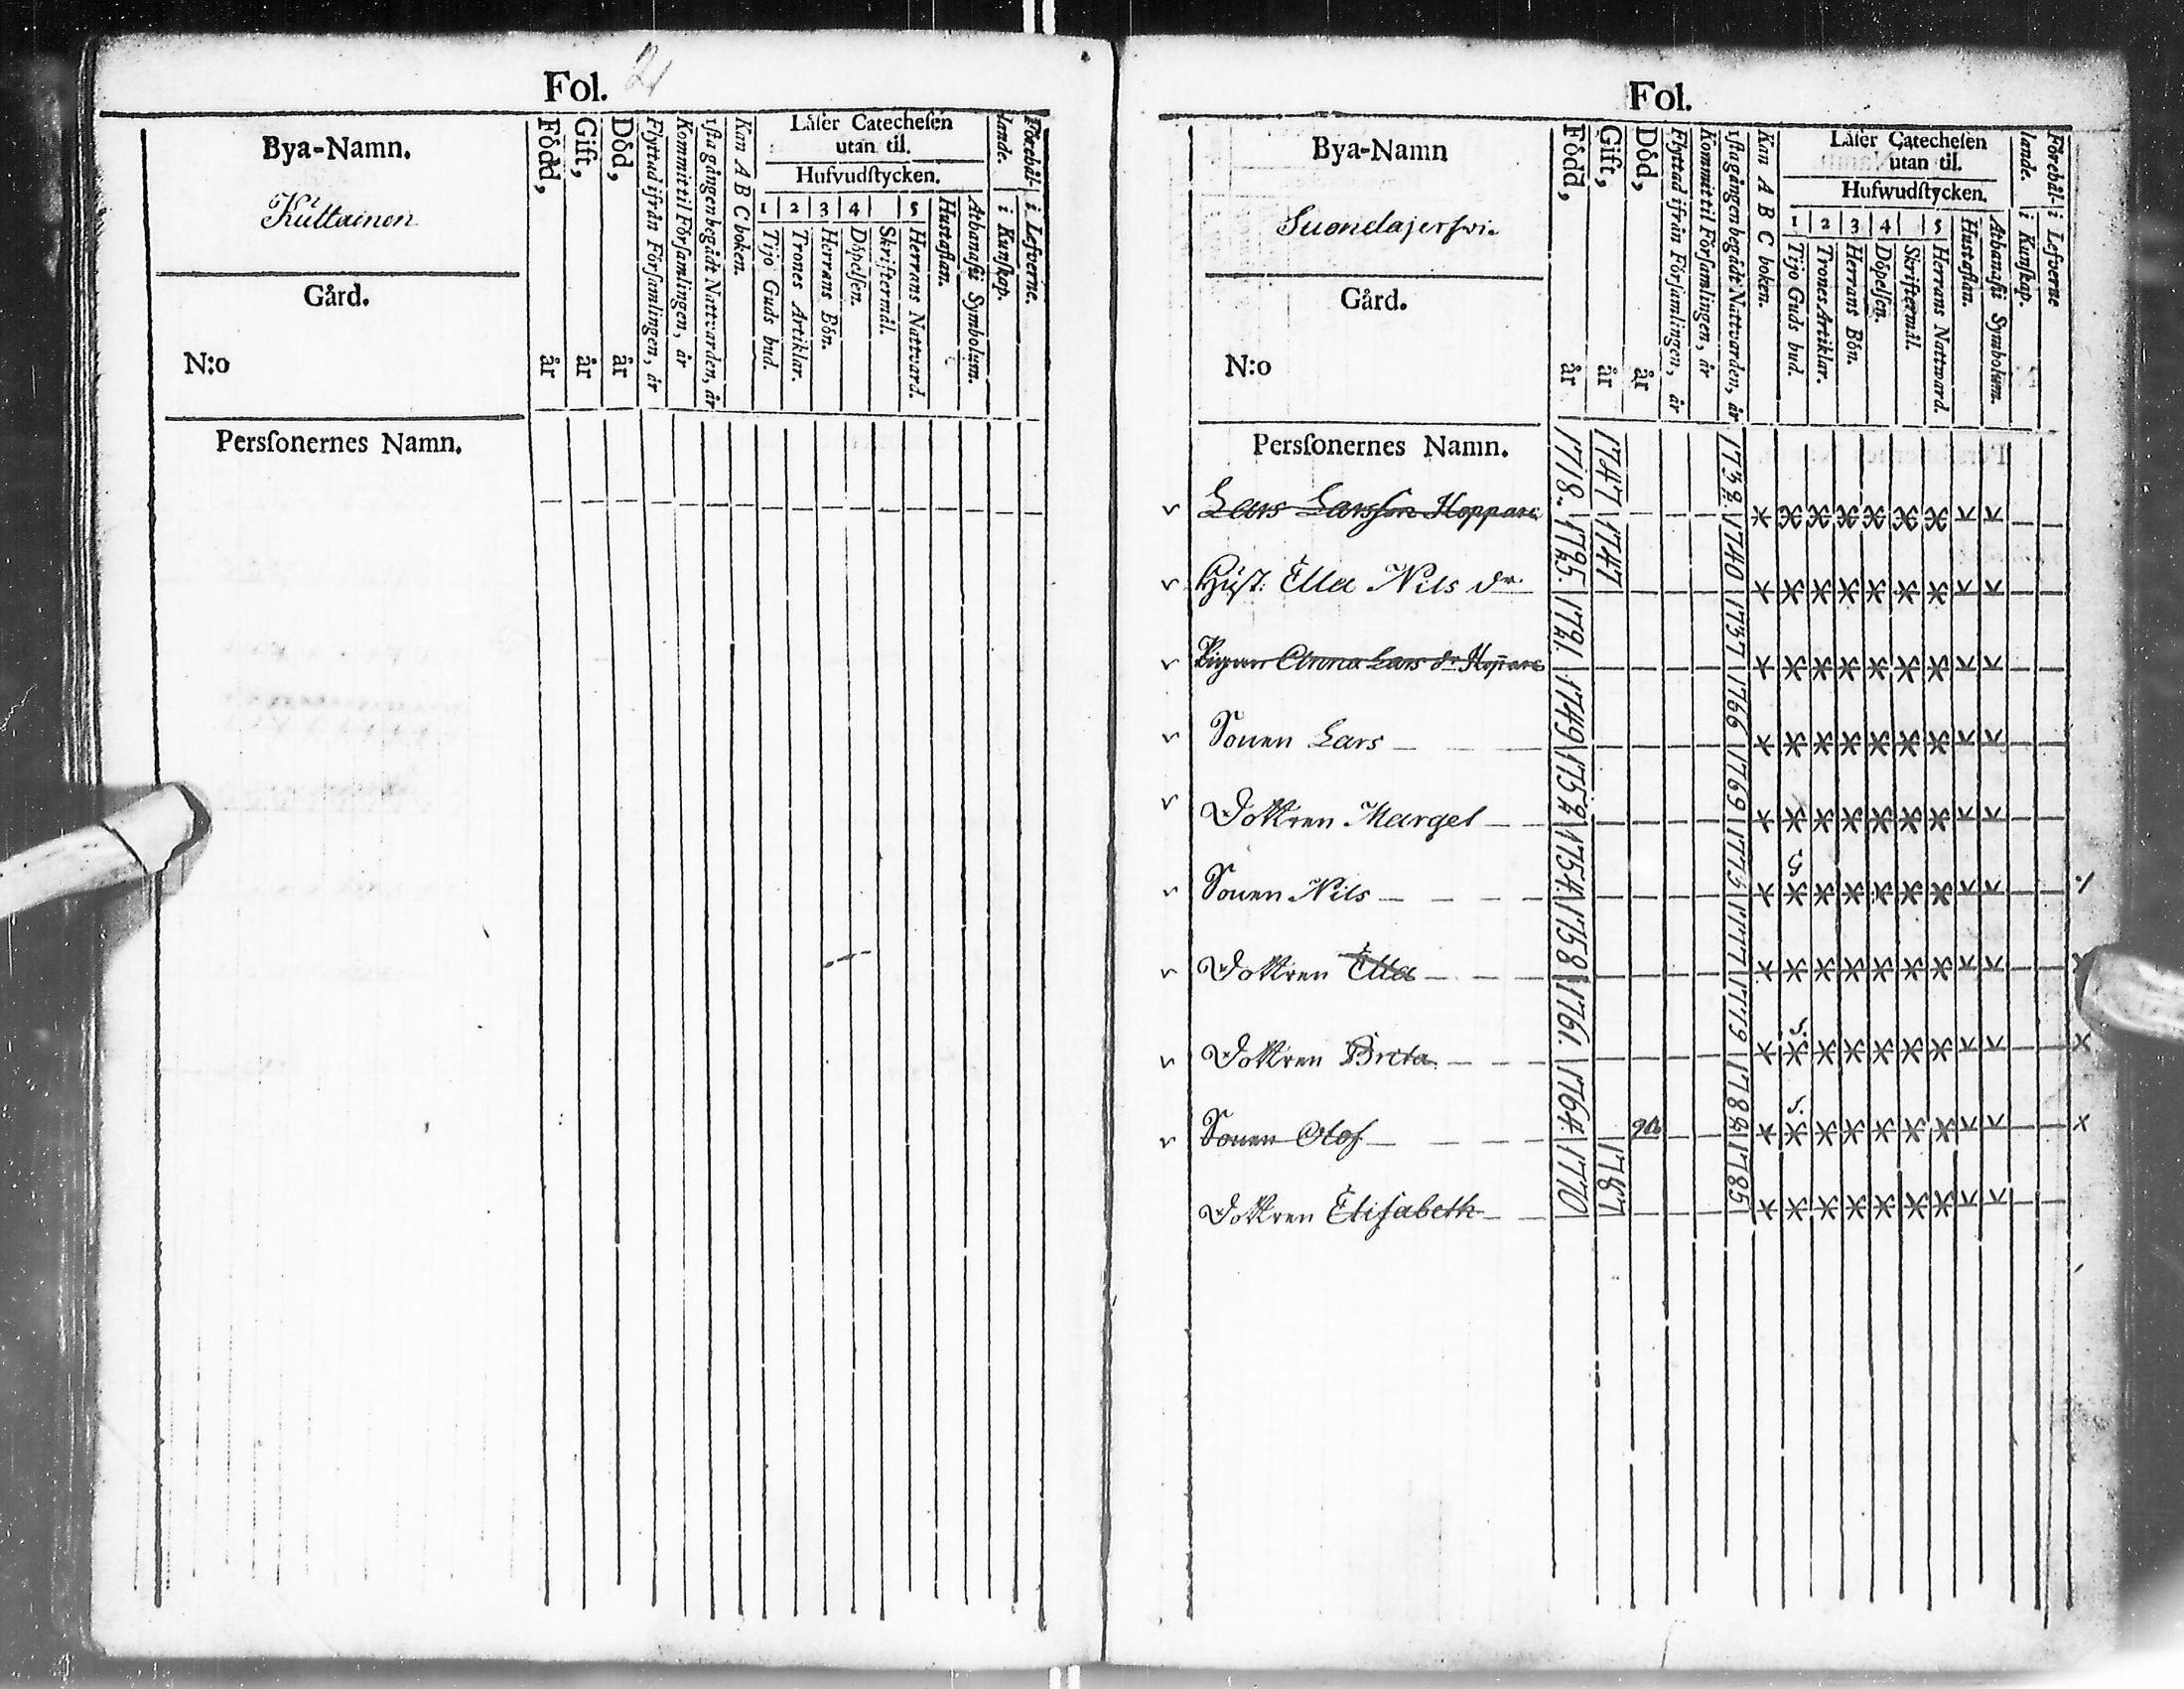 Fol. 21
Bya-Namn.
Kuttainen
Gård.
N:o
Persſonernes Namn.
Född, år
Gift, år
Död, år
Flyttad ifrån Församlingen, år
Kommit til Församlingen, år
1sta gången begådt Nattvarden, år
Kan A B C boken.
Läſer Catecheſen
utan til.
Hufvudſtycken.
1 2 3 4 5
Tijo Guds bud.
Trones Artiklar.
Herrans Bön.
Döpelſen.
Skriftermål.
Herrans Nattvard.
Hustaflan.
Athanaſii Symbolum.
Förehål-
lande.
i Kunſkap.
i Lefverne.
Fol.
Bya-Namn
Suondajerfwi.
Gård.
N:o
Persſonernes Namn.
Född, år
Gift, år
Död, år
Flyttad ifrån Förſamlingen, år
Kommit til Förſamlingen, år
1sta gången begådt Nattvarden, år
Kan A B C boken.
Läſer Catecheſen
utan til.
Hufwudſtycken.
1 2 3 4 5
Tijo Guds bud.
Trones Artiklar.
Herrans Bön.
Döpelſen.
Skriftermål.
Herrans Nattward.
Hustaflan.
Athanaſii Symbolum.
Förehål-
lande.
i Kunſkap.
i Lefverne
Lars Larsſon Hoppare 1718. 1747 1738.
Hust: Ella Nils dr 1725. 1747 1740
Pigan Anna Lars dr Hoppare 1721. 1737
Sonen Lars 1749 1766
Dottren Marget 1752 1769
Sonen Nils 1754 1773
Dottren Ella 1758 1777
Dottren Brita 1761. 1779
Sonen Olof 1764 90 1782
Dottren Eliſabeth 1770 1787 1785